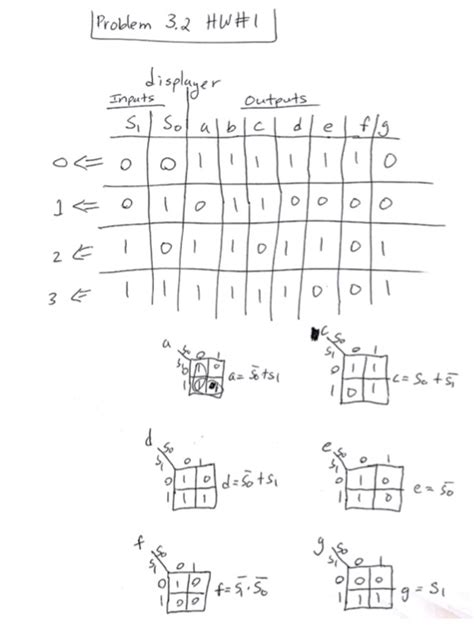 Problem 3.2 HW#1
displayer
Inputs Outputs
S1 S0 a b c d e f g
0 ⇐ 0 0 1 1 1 1 1 1 0
1 ⇐ 0 1 0 1 1 0 0 0 0
2 ⇐ 1 0 1 1 0 1 1 0 1
3 ⇐ 1 1 1 1 1 1 0 0 1
a S0 0 1
S1 0 1 0
1 1 1
a = S̄0 + S1
c S0 0 1
S1 0 1 1
1 0 1
c = S0 + S̄1
d S0 0 1
S1 0 1 0
1 1 1
d = S̄0 + S1
e S0 0 1
S1 0 1 0
1 1 0
e = S̄0
f S0 0 1
S1 0 1 0
1 0 0
f = S̄1 · S̄0
g S0 0 1
S1 0 0 0
1 1 1
g = S1